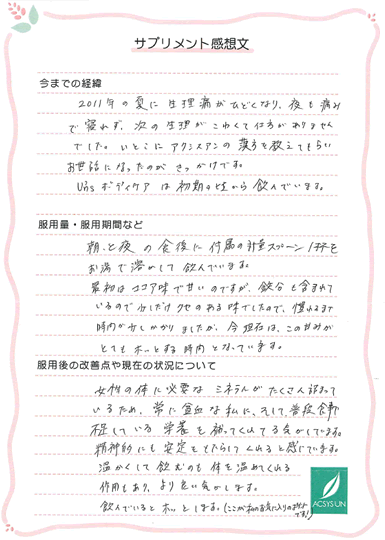 サプリメント感想文
今までの経緯
2011年の夏に生理痛がひどくなり、夜も痛み
で寝れず、次の生理がこわくて仕方がありません
でした。いとこにアクシスアンの漢方を教えてもらい
お世話になったのがきっかけです。
ボディケアは初期の頃から飲んでいます。
服用量・服用期間など
朝と夜の食後に付属の計量スプーン1杯を
お湯で溶かして飲んでいます。
最初はココア味で甘いのですが、鉄分も含まれて
いるので少しだけクセのある味でしたので、慣れるまで
時間が少しかかりましたが、今現在は、この甘みが
とてもホッとする時間となっています。
服用後の改善点や現在の状況について
女性の体に必要なミネラルがたくさん詰まって
いるため、常に貧血な私に、そして普段食事
不足している栄養を補ってくれてる気がしています。
精神的にも安定をもたらしてくれると感じています。
温かくして飲むのも体を温めてくれる
作用もあり、より良い気がします。
飲んでいるとホッとします。(ここが私のお気に入りのポイント
です!)
ACSYS UN